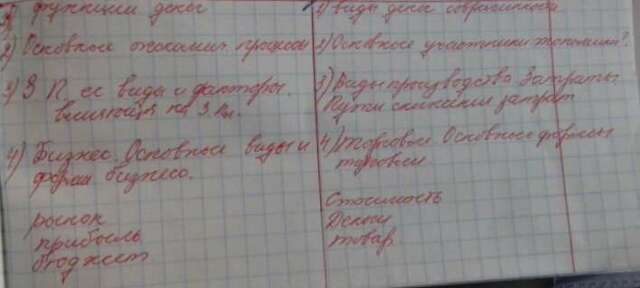 1) функции денег
2) Основные экономич. процессы
3) З. П. ее виды и факторы.
влияющия на З. Пл.
4) Бизнес. Основные виды и
форм бизнеса.
рынок
прибыль
бюджет
1) виды денег
2) Основные участники экономики?
3) Виды производства. Затраты.
Пути снижения затрат
4) Торговые. Основные формы
торговли
Стоимость
Деньги
товар